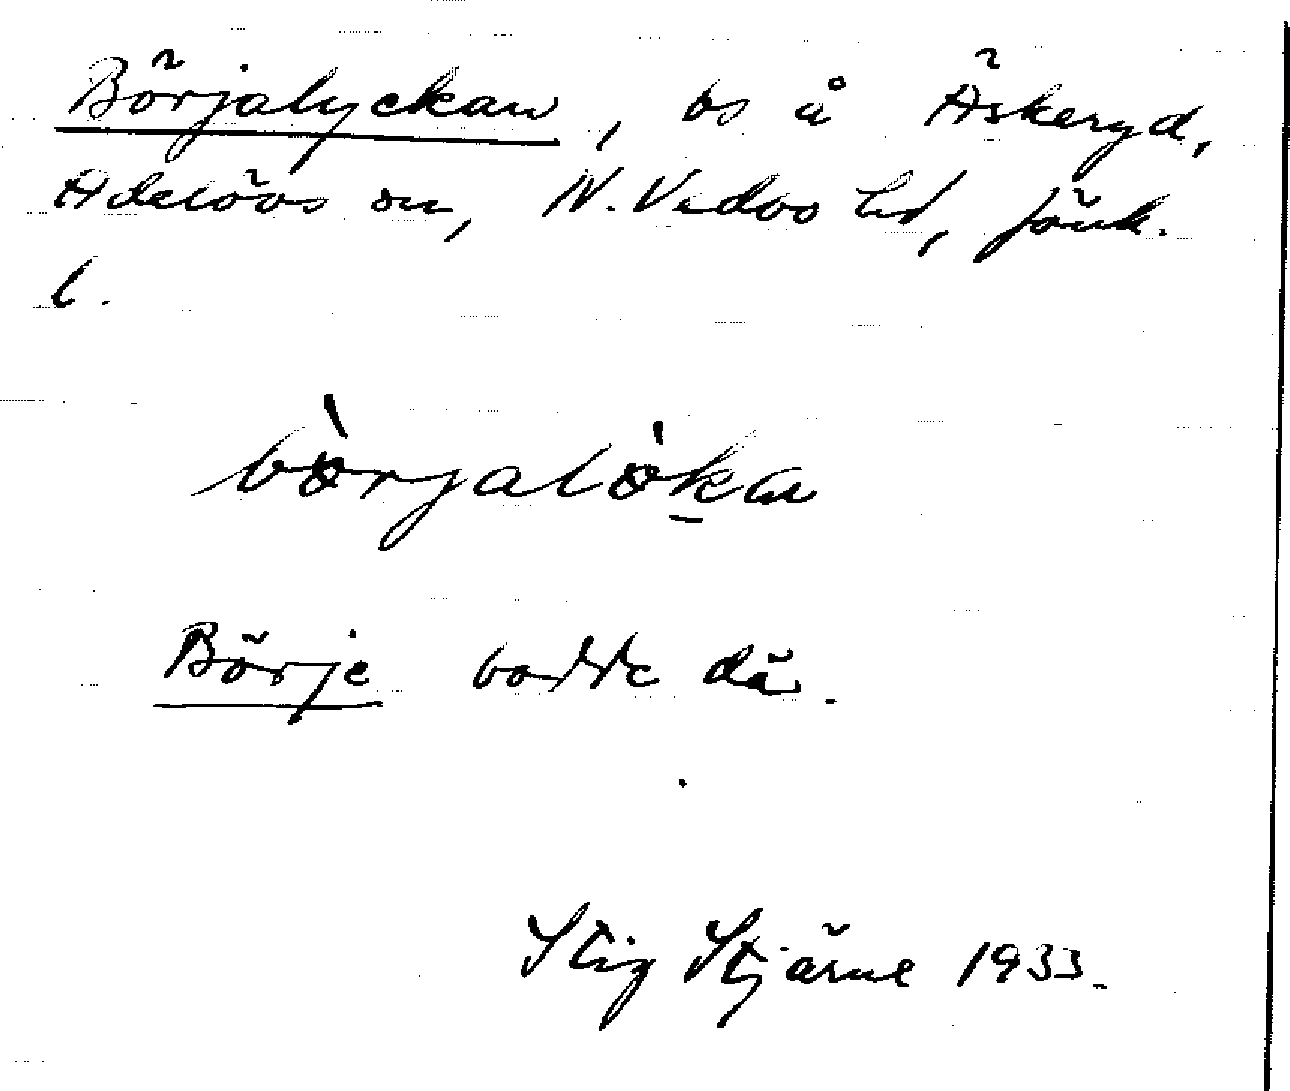 Börjalyckan, bs å Äskeryd,
Adelövs sn, N. Vedbo hd, Jönk.
l.
börjalökan
Börje bodde dä.
Stig Stjärne 1933.